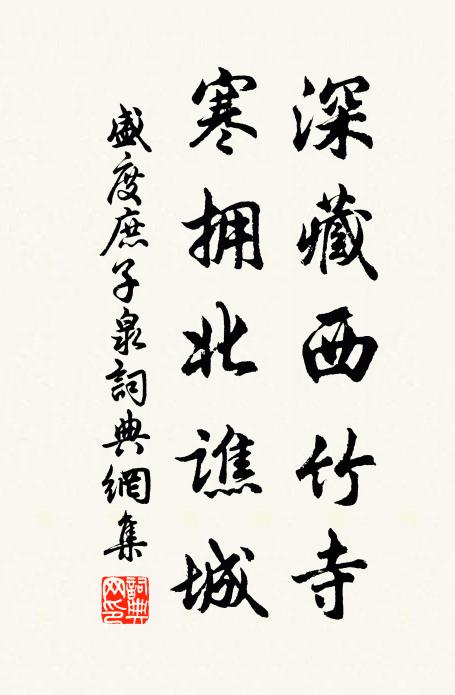 深藏西竹寺
寒拥北譙城
盛度庶子泉詞典網集
詞典網印